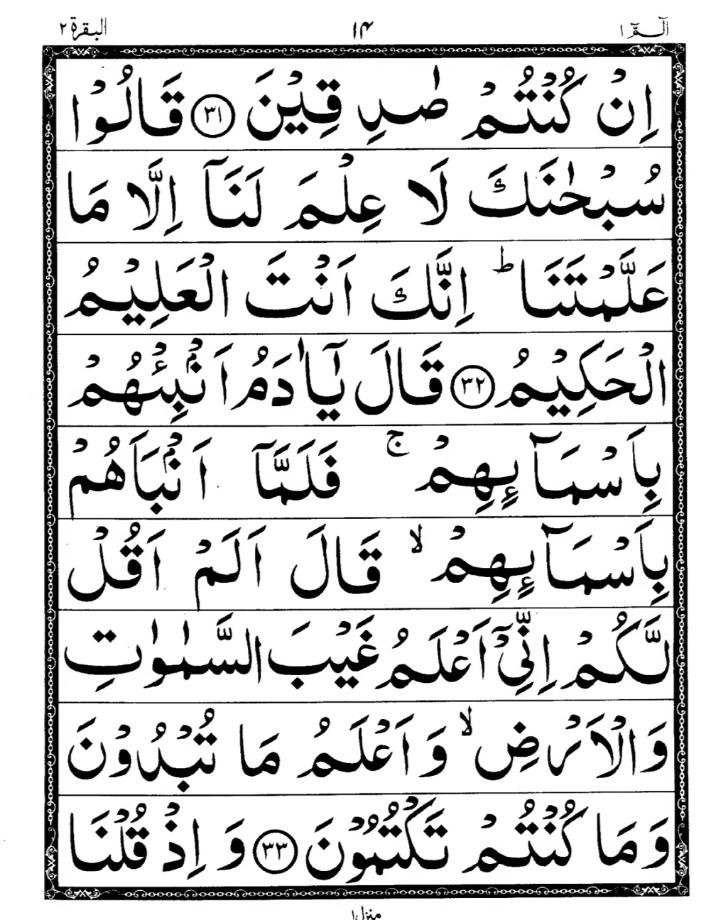 البقرة ٢ ١٤ الٓمّٓ ١
اِنْ كُنْتُمْ صٰدِقِيْنَ ﴿٣١﴾ قَالُوْا
سُبْحٰنَكَ لَا عِلْمَ لَنَاۤ اِلَّا مَا
عَلَّمْتَنَا ؕ اِنَّكَ اَنْتَ الْعَلِيْمُ
الْحَكِيْمُ ﴿٣٢﴾ قَالَ يٰۤاٰدَمُ اَنْۢبِئْهُمْ
بِاَسْمَآئِهِمْ ۚ فَلَمَّاۤ اَنْۢبَاَهُمْ
بِاَسْمَآئِهِمْ ۙ قَالَ اَلَمْ اَقُلْ
لَّكُمْ اِنِّيْۤ اَعْلَمُ غَيْبَ السَّمٰوٰتِ
وَالْاَرْضِ ۙ وَاَعْلَمُ مَا تُبْدُوْنَ
وَمَا كُنْتُمْ تَكْتُمُوْنَ ﴿٣٣﴾ وَ اِذْ قُلْنَا
منزل ١